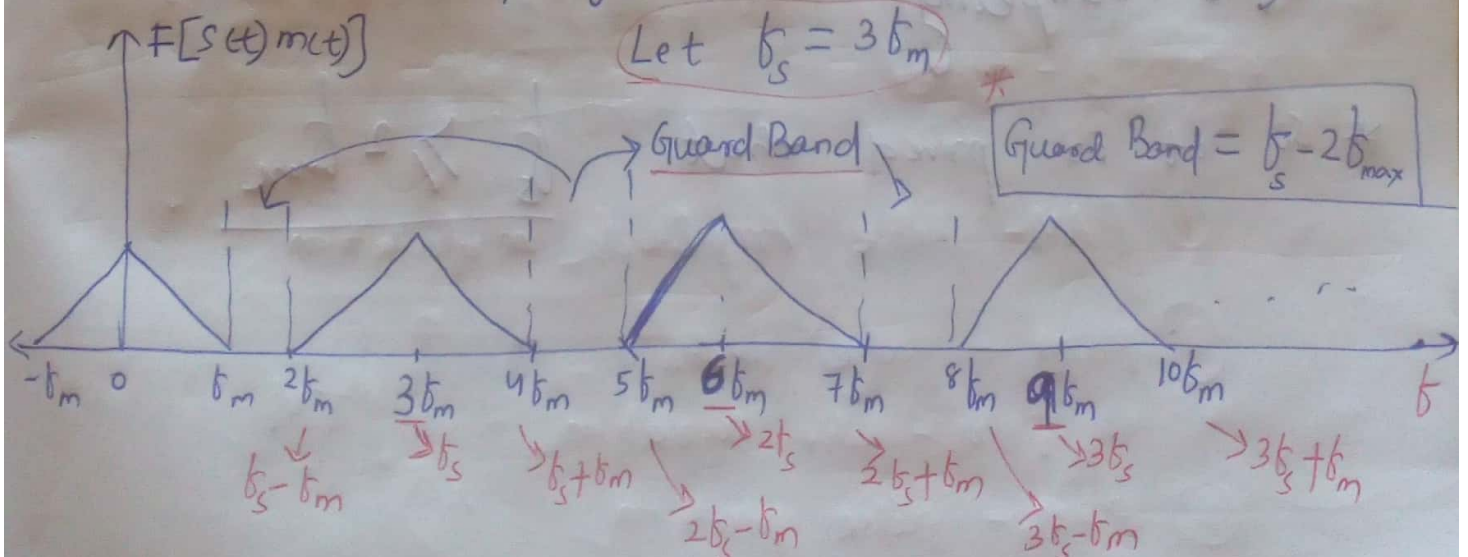 F[s(t)m(t)]
Let fs = 3fm
*
Guard Band
Guard Band = fs - 2fmax
-fm 0 fm 2fm 3fm 4fm 5fm 6fm 7fm 8fm 9fm 10fm f
fs - fm fs fs + fm 2fs - fm 2fs 2fs + fm 3fs - fm 3fs 3fs + fm